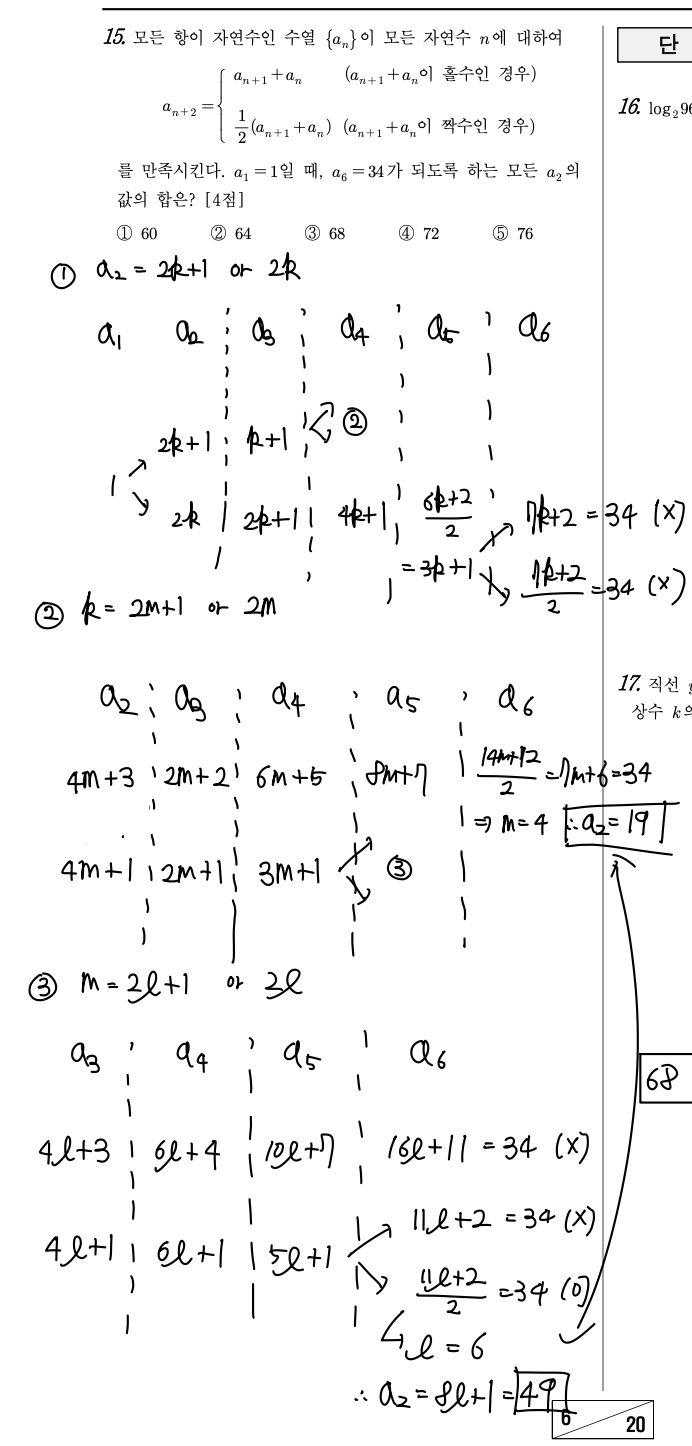 15. 모든 항이 자연수인 수열 {aₙ}이 모든 자연수 n에 대하여
aₙ₊₂ = { aₙ₊₁+aₙ (aₙ₊₁+aₙ이 홀수인 경우)
1/2(aₙ₊₁+aₙ) (aₙ₊₁+aₙ이 짝수인 경우)
를 만족시킨다. a₁=1일 때, a₆=34가 되도록 하는 모든 a₂의
값의 합은? [4점]
① 60 ② 64 ③ 68 ④ 72 ⑤ 76
단
16. log₂96
① a₂ = 2k+1 or 2k
a₁ a₂ a₃ a₄ a₅ a₆
2k+1 k+1 ②
1
2k 2k+1 4k+1 (6k+2)/2 7k+2 = 34 (X)
= 3k+1 (7k+2)/2 = 34 (X)
② k = 2m+1 or 2m
17. 직선
상수 k의
a₂ a₃ a₄ a₅ a₆
4m+3 2m+2 6m+5 8m+7 (14m+12)/2 = 7m+6 = 34
⇒ m = 4 ∴ a₂ = 19
4m+1 2m+1 3m+1 ③
③ m = 2l+1 or 2l
a₃ a₄ a₅ a₆
68
4l+3 6l+4 10l+7 16l+11 = 34 (X)
11l+2 = 34 (X)
4l+1 6l+1 5l+1
(11l+2)/2 = 34 (O)
l = 6
∴ a₂ = 8l+1 = 49
6 20